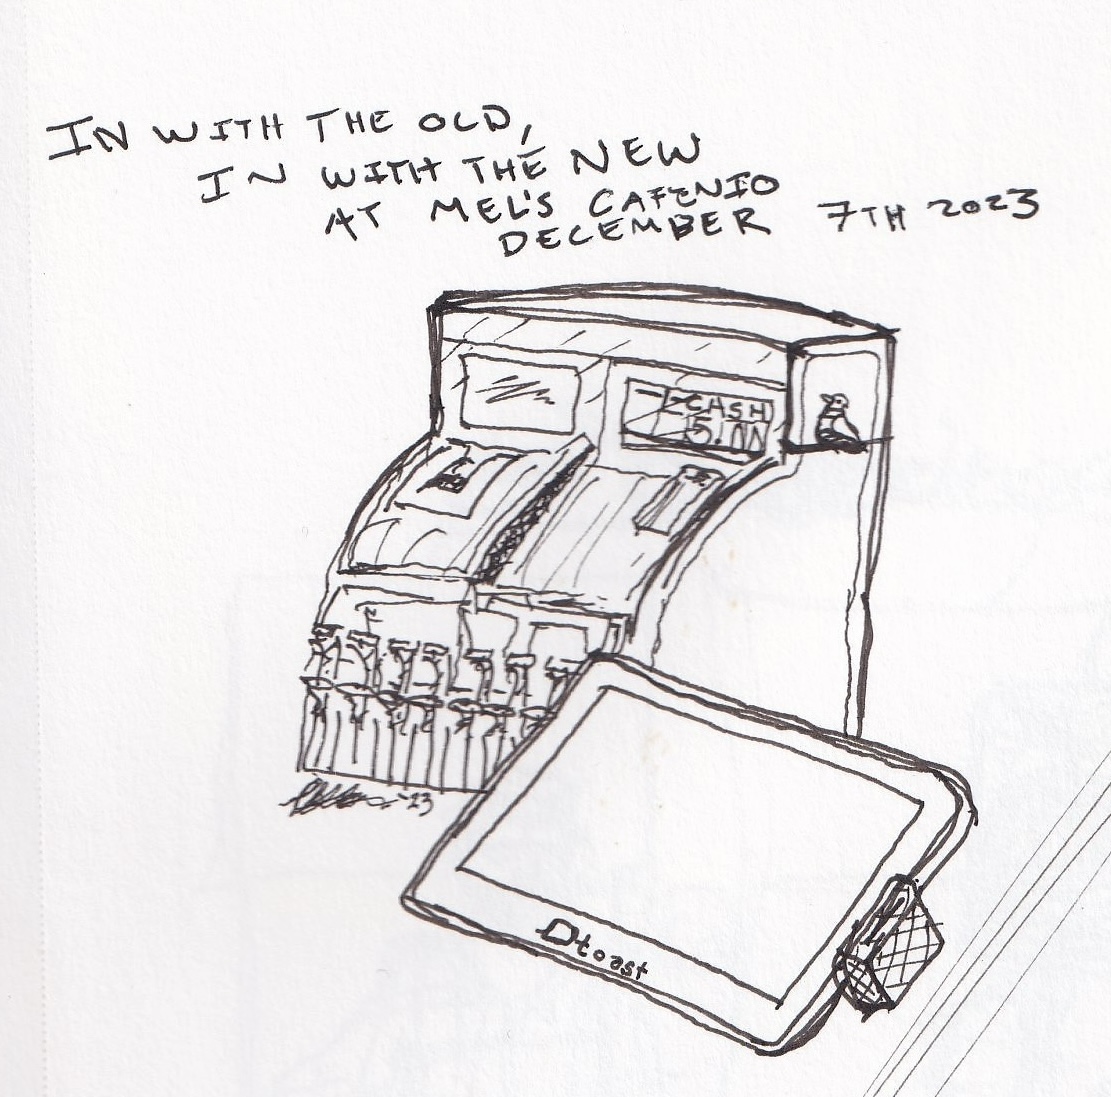 IN WITH THE OLD,
IN WITH THE NEW
AT MEL'S CAFENIO
DECEMBER 7TH 2023
CASH
toast
'23